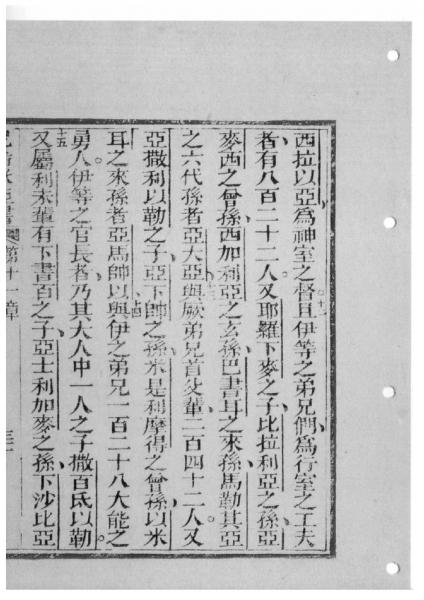 西拉以亞爲神室之督且伊等之弟兄們爲行室之工夫
十二
者有八百二十二人又耶羅下麥之子比拉利亞之孫亞
麥西之曾孫西加利亞之玄孫巴書耳之來孫馬勒其亞
十三
之六代孫者亞大亞與厥弟兄首父輩二百四十二人又
亞撒利以勒之子亞下帥之孫米是利摩得之曾孫以米
十四
耳之來孫者亞馬帥以與伊之弟兄一百二十八大能之
勇人伊等之官長者乃其大人中一人之子撒百氐以勒
十五
又屬利未輩有下書百之子亞士利加麥之孫下沙比亞
第十一章